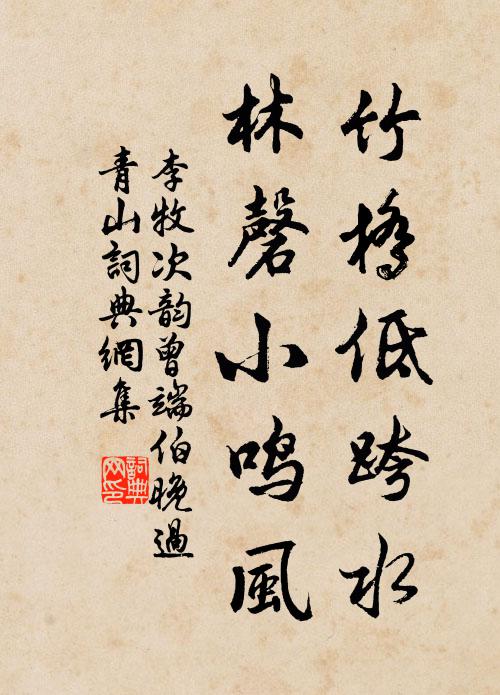 竹橋低跨水
林磬小鳴風
李牧次韵曾端伯晚過
青山詞典網集
詞典网印